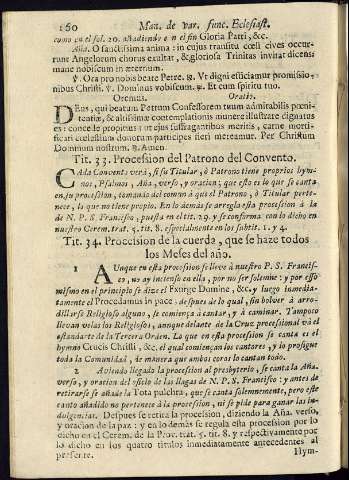 160 Man. de var. func. Eclesiast.
como en el fol. 20. añadiendo en el fin Gloria Patri, &c.
Aña. O sanctissima anima: in cujus transitu cœli cives occur-
runt Angelorum chorus exultat, & gloriosa Trinitas invitat dicens:
mane nobiscum in æternum.
℣. Ora pro nobis beate Petre. ℟. Vt digni efficiamur promissio-
nibus Christi. ℣. Dominus vobiscum. ℟. Et cum spiritu tuo.
Oremus. Oratio.
DEus, qui beatum Petrum Confessorem tuum admirabilis pœni-
tentiæ, & altissimæ contemplationis munere illustrare dignatus
es: concede propitius: ut ejus suffragantibus meritis, carne morti-
ficati cœlestium donorum participes fieri mereamur. Per Christum
Dominum nostrum. ℟. Amen.
Tit. 33. Procession del Patrono del Convento.
CAda Convento verá, si su Titular, ò Patrono tiene proprios hym-
nos, Psalmos, Aña, verso, y oracion; que esto es lo que se canta
en su procession, tomando del comun à que el Patrono, ò Titular perte-
nece, lo que no tiene proprio. En lo demás se arregla esta procession à la
de N. P. S. Francisco, puesta en el tit. 29. y se conforma con lo dicho en
nuestro Cerem. trat. 5. tit. 8. especialmente en los subtit. 1. y 4.
Tit. 34. Procession de la cuerda, que se haze todos
los Meses del año.
1 AUnque en esta procession se lleve à nuestro P. S. Francis-
co, no ay incienso en ella, por no ser solemne: y por esso
mismo en el principio se dize el Exurge Domine, &c. y luego inmedia-
tamente el Procedamus in pace: despues de lo qual, sin bolver à arro-
dillarse Religioso alguno, se comiença à cantar, y à caminar. Tampoco
llevan velas los Religiosos, aunque delante de la Cruz processional và el
estandarte de la Tercera Orden. Lo que en esta procession se canta es el
hymno Crucis Christi, &c. el qual comiençan los cantores, y lo prosigue
toda la Comunidad, de manera que ambos coros lo cantan todo.
2 Aviendo llegado la procession al presbyterio, se canta la Aña.
verso, y oracion del oficio de las llagas de N. P. S. Francisco: y antes de
retirarse se añade la Tota pulchra, que se canta solemnemente, pero este
canto añadido no pertenece à la procession, ni se pide para ganar las in-
dulgencias. Despues se retira la procession, diziendo la Aña. verso,
y oracion de la paz: y en lo demàs se regula esta procession por lo
dicho en el Cerem. de la Prov. trat. 5. tit. 8. y respectivamente por
lo dicho en los quatro titulos inmediatamente antecedentes al
presente.
Hym-